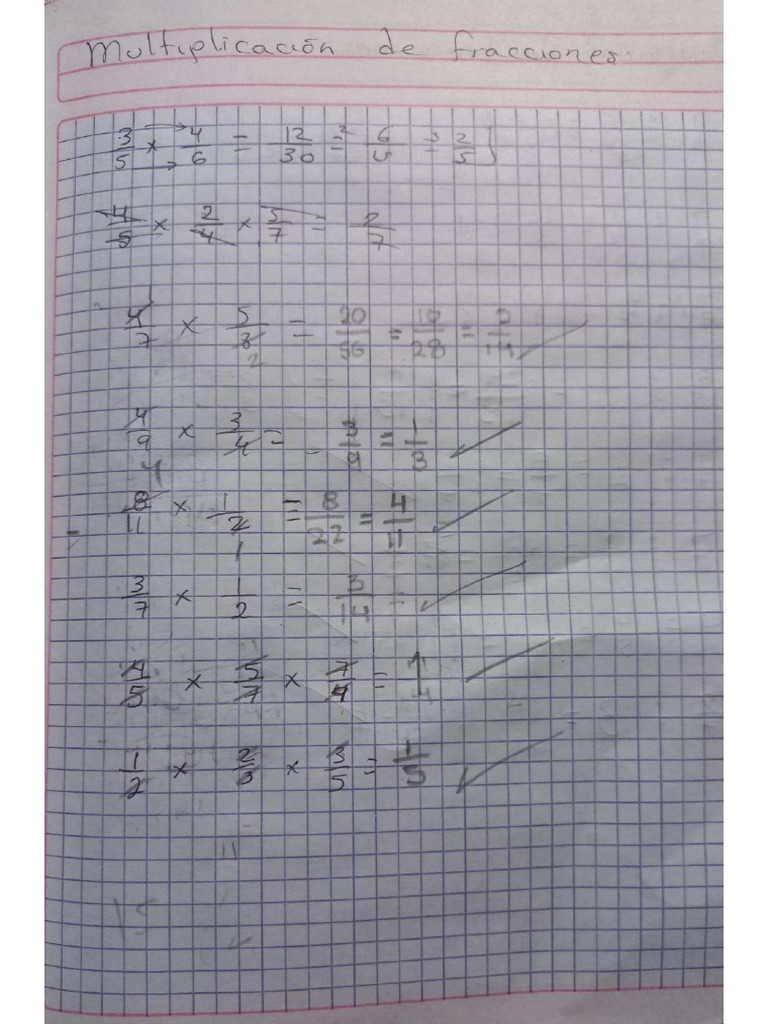 Multiplicación de fracciones
3/5 × 4/6 = 12/30 = 6/15 = 2/5
4/5 × 2/4 × 5/7 = 2/7
4/7 × 5/8 2 = 20/56 = 10/28 =
4/9 × 3/4 = 3/9 = 1/3
4
8/11 × 1/2 = 8/22 = 4/11
1
3/7 × 1/2 = 3/14 =
4/5 × 5/7 × 7/4 =
1/2 × 2/3 × 3/5 = 1/5
11
15